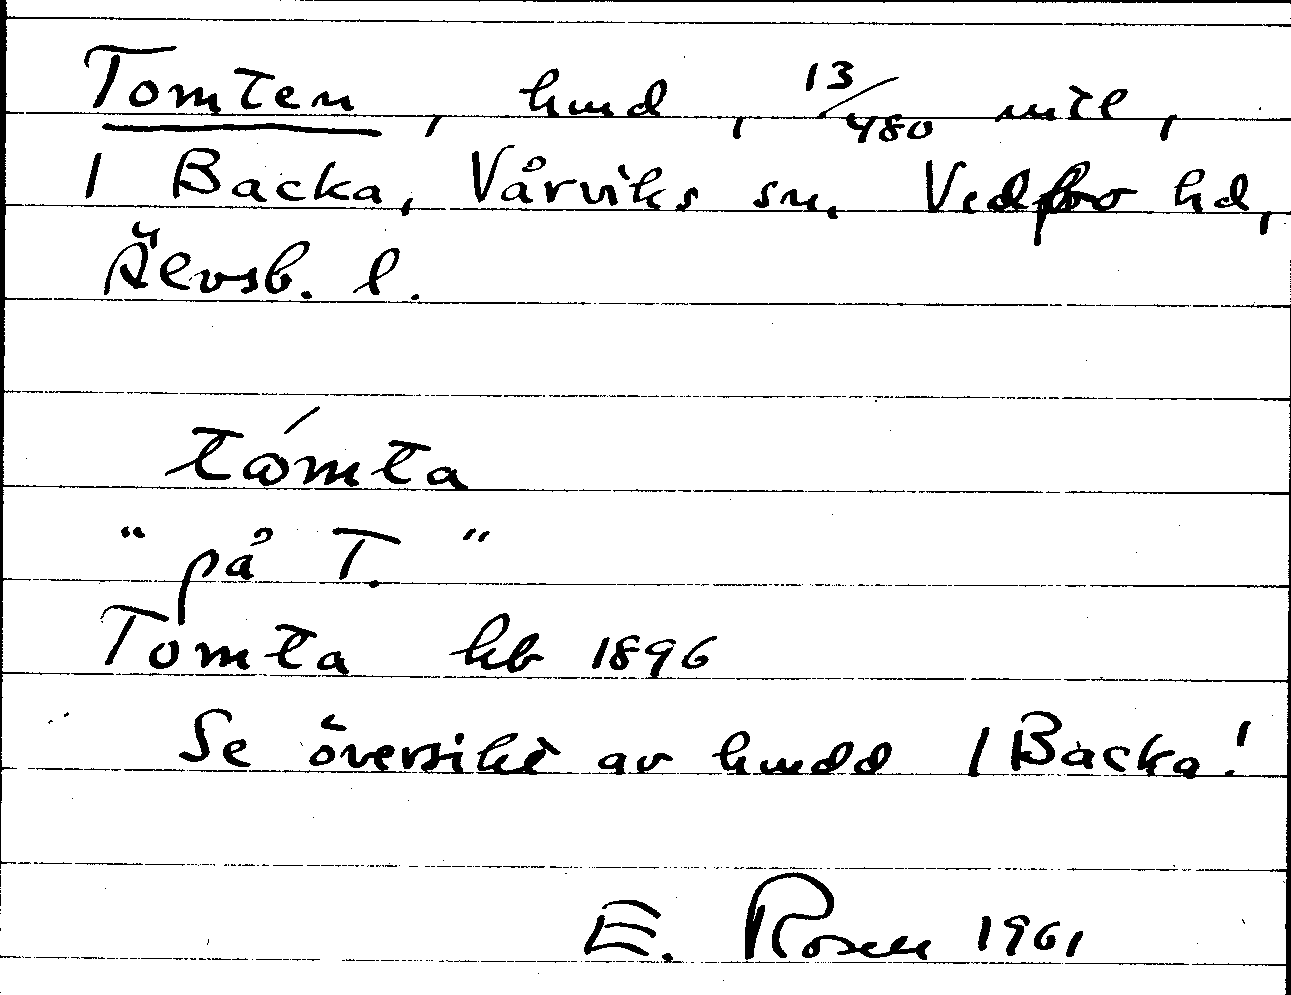 Tomten, hmd, 13/480 mtl,
1 Backa, Vårviks sn. Vedbo hd,
Älvsb. l.
tómta
"på T."
Tomta kb 1896
Se översikt av hmdd 1 Backa!
E. Rosen 1961